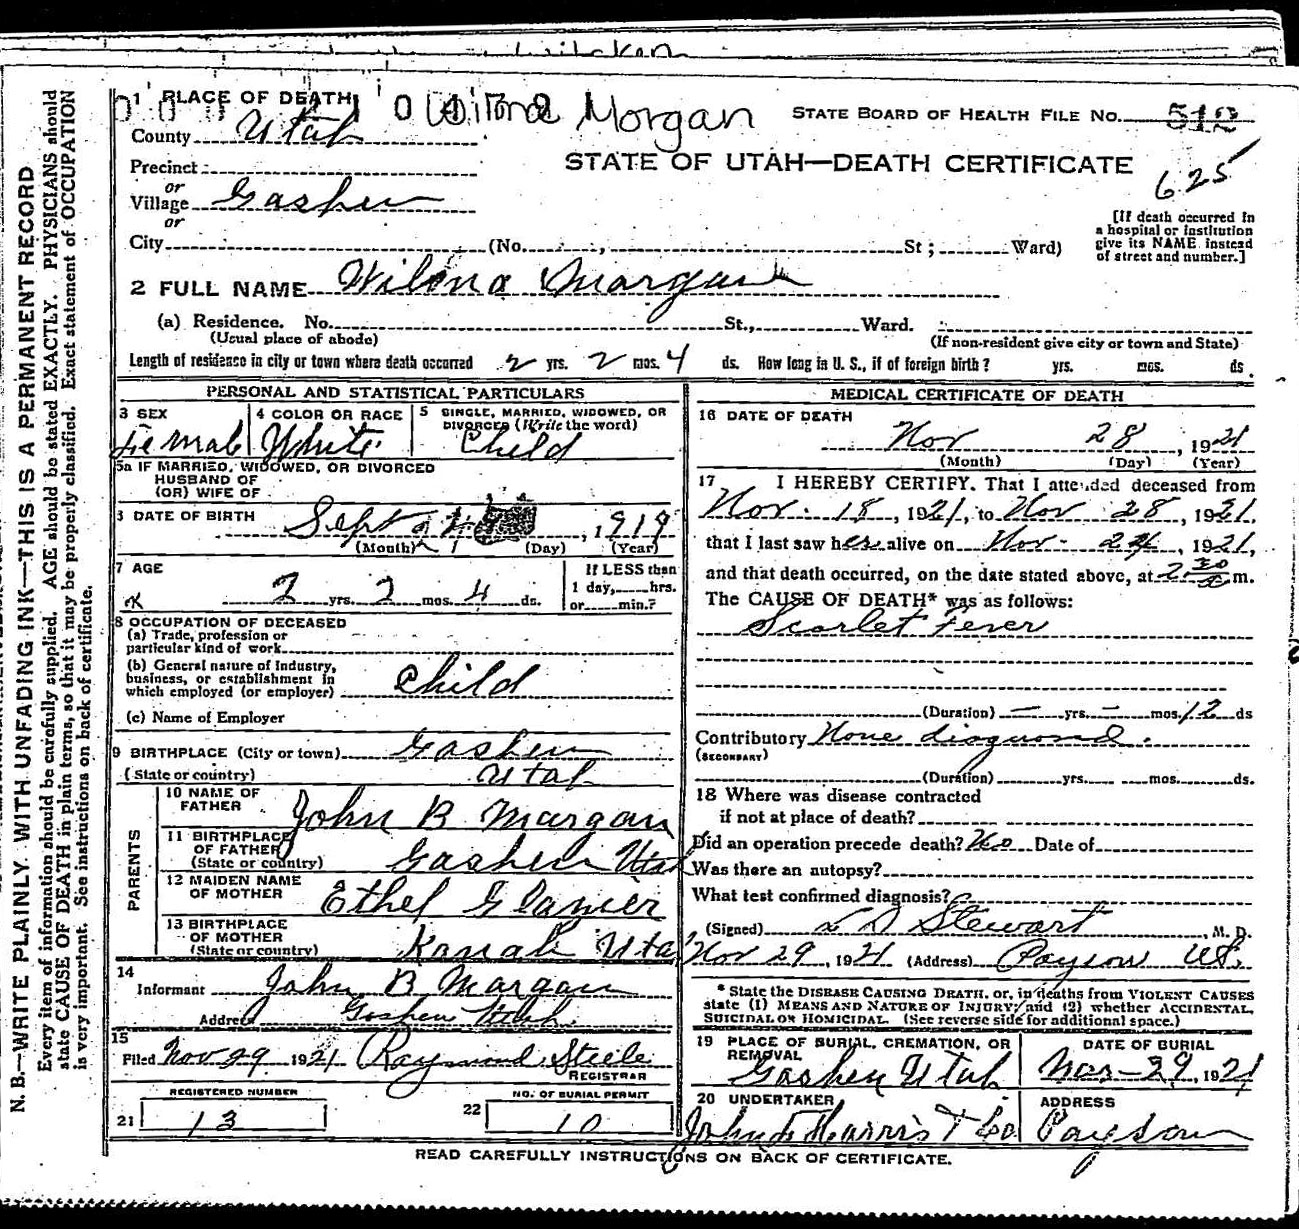 Wilna Morgan
1 PLACE OF DEATH
STATE BOARD OF HEALTH FILE No. 512
County Utah
STATE OF UTAH—DEATH CERTIFICATE
625
Precinct
or
Village Goshen
or
[If death occurred in
a hospital or institution
give its NAME instead
of street and number.]
City (No. St; Ward)
2 FULL NAME Wilma Morgan
(a) Residence. No. St., Ward.
(Usual place of abode) (If non-resident give city or town and State)
Length of residence in city or town where death occurred 2 yrs. 2 mos. 4 ds. How long in U. S., if of foreign birth? yrs. mos. ds.
PERSONAL AND STATISTICAL PARTICULARS
3 SEX
Female
4 COLOR OR RACE
White
5 SINGLE, MARRIED, WIDOWED, OR
DIVORCED (Write the word)
Child
5a IF MARRIED, WIDOWED, OR DIVORCED
HUSBAND OF
(OR) WIFE OF
6 DATE OF BIRTH Sept , 1919
(Month) (Day) (Year)
7 AGE
2 yrs. 2 mos. 4 ds.
If LESS than
1 day, hrs.
or min.?
8 OCCUPATION OF DECEASED
(a) Trade, profession or
particular kind of work
(b) General nature of Industry,
business, or establishment in
which employed (or employer) Child
(c) Name of Employer
9 BIRTHPLACE (City or town) Goshen
(State or country) Utah
PARENTS
10 NAME OF
FATHER John B Morgan
11 BIRTHPLACE
OF FATHER
(State or country) Goshen Utah
12 MAIDEN NAME
OF MOTHER Ethel Glanier
13 BIRTHPLACE
OF MOTHER
(State or country) Kanab Utah
14
Informant John B Morgan
Address Goshen Utah
15
Filed Nov 29 1921 Raymond Steele
REGISTRAR
REGISTERED NUMBER
21 13
NO. OF BURIAL PERMIT
22 10
MEDICAL CERTIFICATE OF DEATH
16 DATE OF DEATH
Nov 28, 1921
(Month) (Day) (Year)
17 I HEREBY CERTIFY, That I attended deceased from
Nov. 18, 1921, to Nov 28, 1921,
that I last saw her alive on Nov. 24, 1921,
and that death occurred, on the date stated above, at 2 30 m.
The CAUSE OF DEATH* was as follows:
Scarlet Fever
(Duration) — yrs. — mos. 12 ds
Contributory None diagnosed.
(SECONDARY)
(Duration) yrs. mos. ds.
18 Where was disease contracted
if not at place of death?
Did an operation precede death? No Date of
Was there an autopsy?
What test confirmed diagnosis?
(Signed) L D Stewart, M. D.
Nov 29, 1921 (Address) Payson Ut.
* State the DISEASE CAUSING DEATH, or, in deaths from VIOLENT CAUSES
state (1) MEANS AND NATURE OF INJURY; and (2) whether ACCIDENTAL,
SUICIDAL OR HOMICIDAL. (See reverse side for additional space.)
19 PLACE OF BURIAL, CREMATION, OR
REMOVAL
Goshen Utah
DATE OF BURIAL
Nov — 29, 1921
20 UNDERTAKER
John F Harris & Co
ADDRESS
Payson
READ CAREFULLY INSTRUCTIONS ON BACK OF CERTIFICATE.
N. B.—WRITE PLAINLY, WITH UNFADING INK—THIS IS A PERMANENT RECORD
Every item of information should be carefully supplied. AGE should be stated EXACTLY. PHYSICIANS should
state CAUSE OF DEATH in plain terms, so that it may be properly classified. Exact statement of OCCUPATION
is very important. See instructions on back of certificate.